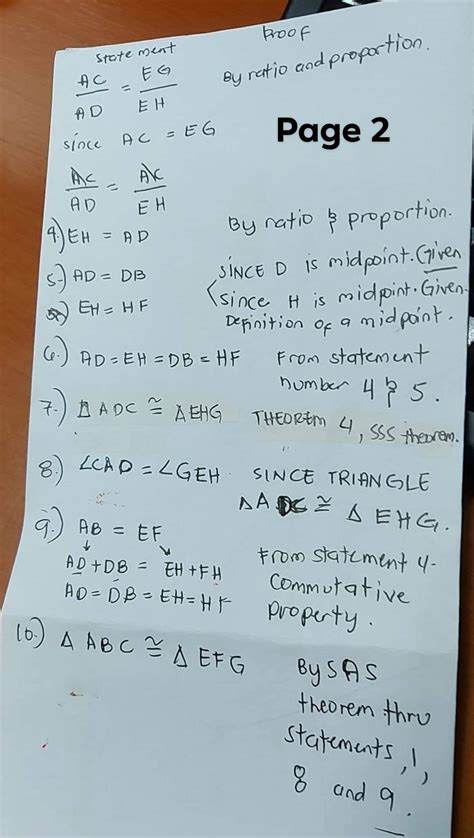 statement proof
AC/AD = EG/EH By ratio and proportion.
since AC = EG
Page 2
AC/AD = AC/EH
4.) EH = AD By ratio & proportion.
5.) AD = DB SINCE D is midpoint. Given
EH = HF since H is midpoint. Given.
Definition of a midpoint.
6.) AD = EH = DB = HF From statement
number 4 & 5.
7.) △ADC ≅ △EHG THEOREM 4, SSS theorem.
8.) ∠CAD = ∠GEH. SINCE TRIANGLE
△ADC ≅ △EHG.
9.) AB = EF From statement 4-
AD + DB = EH + FH commutative
AD = DB = EH = HF property.
10.) △ABC ≅ △EFG By SAS
theorem thru
statements, 1,
8 and 9.